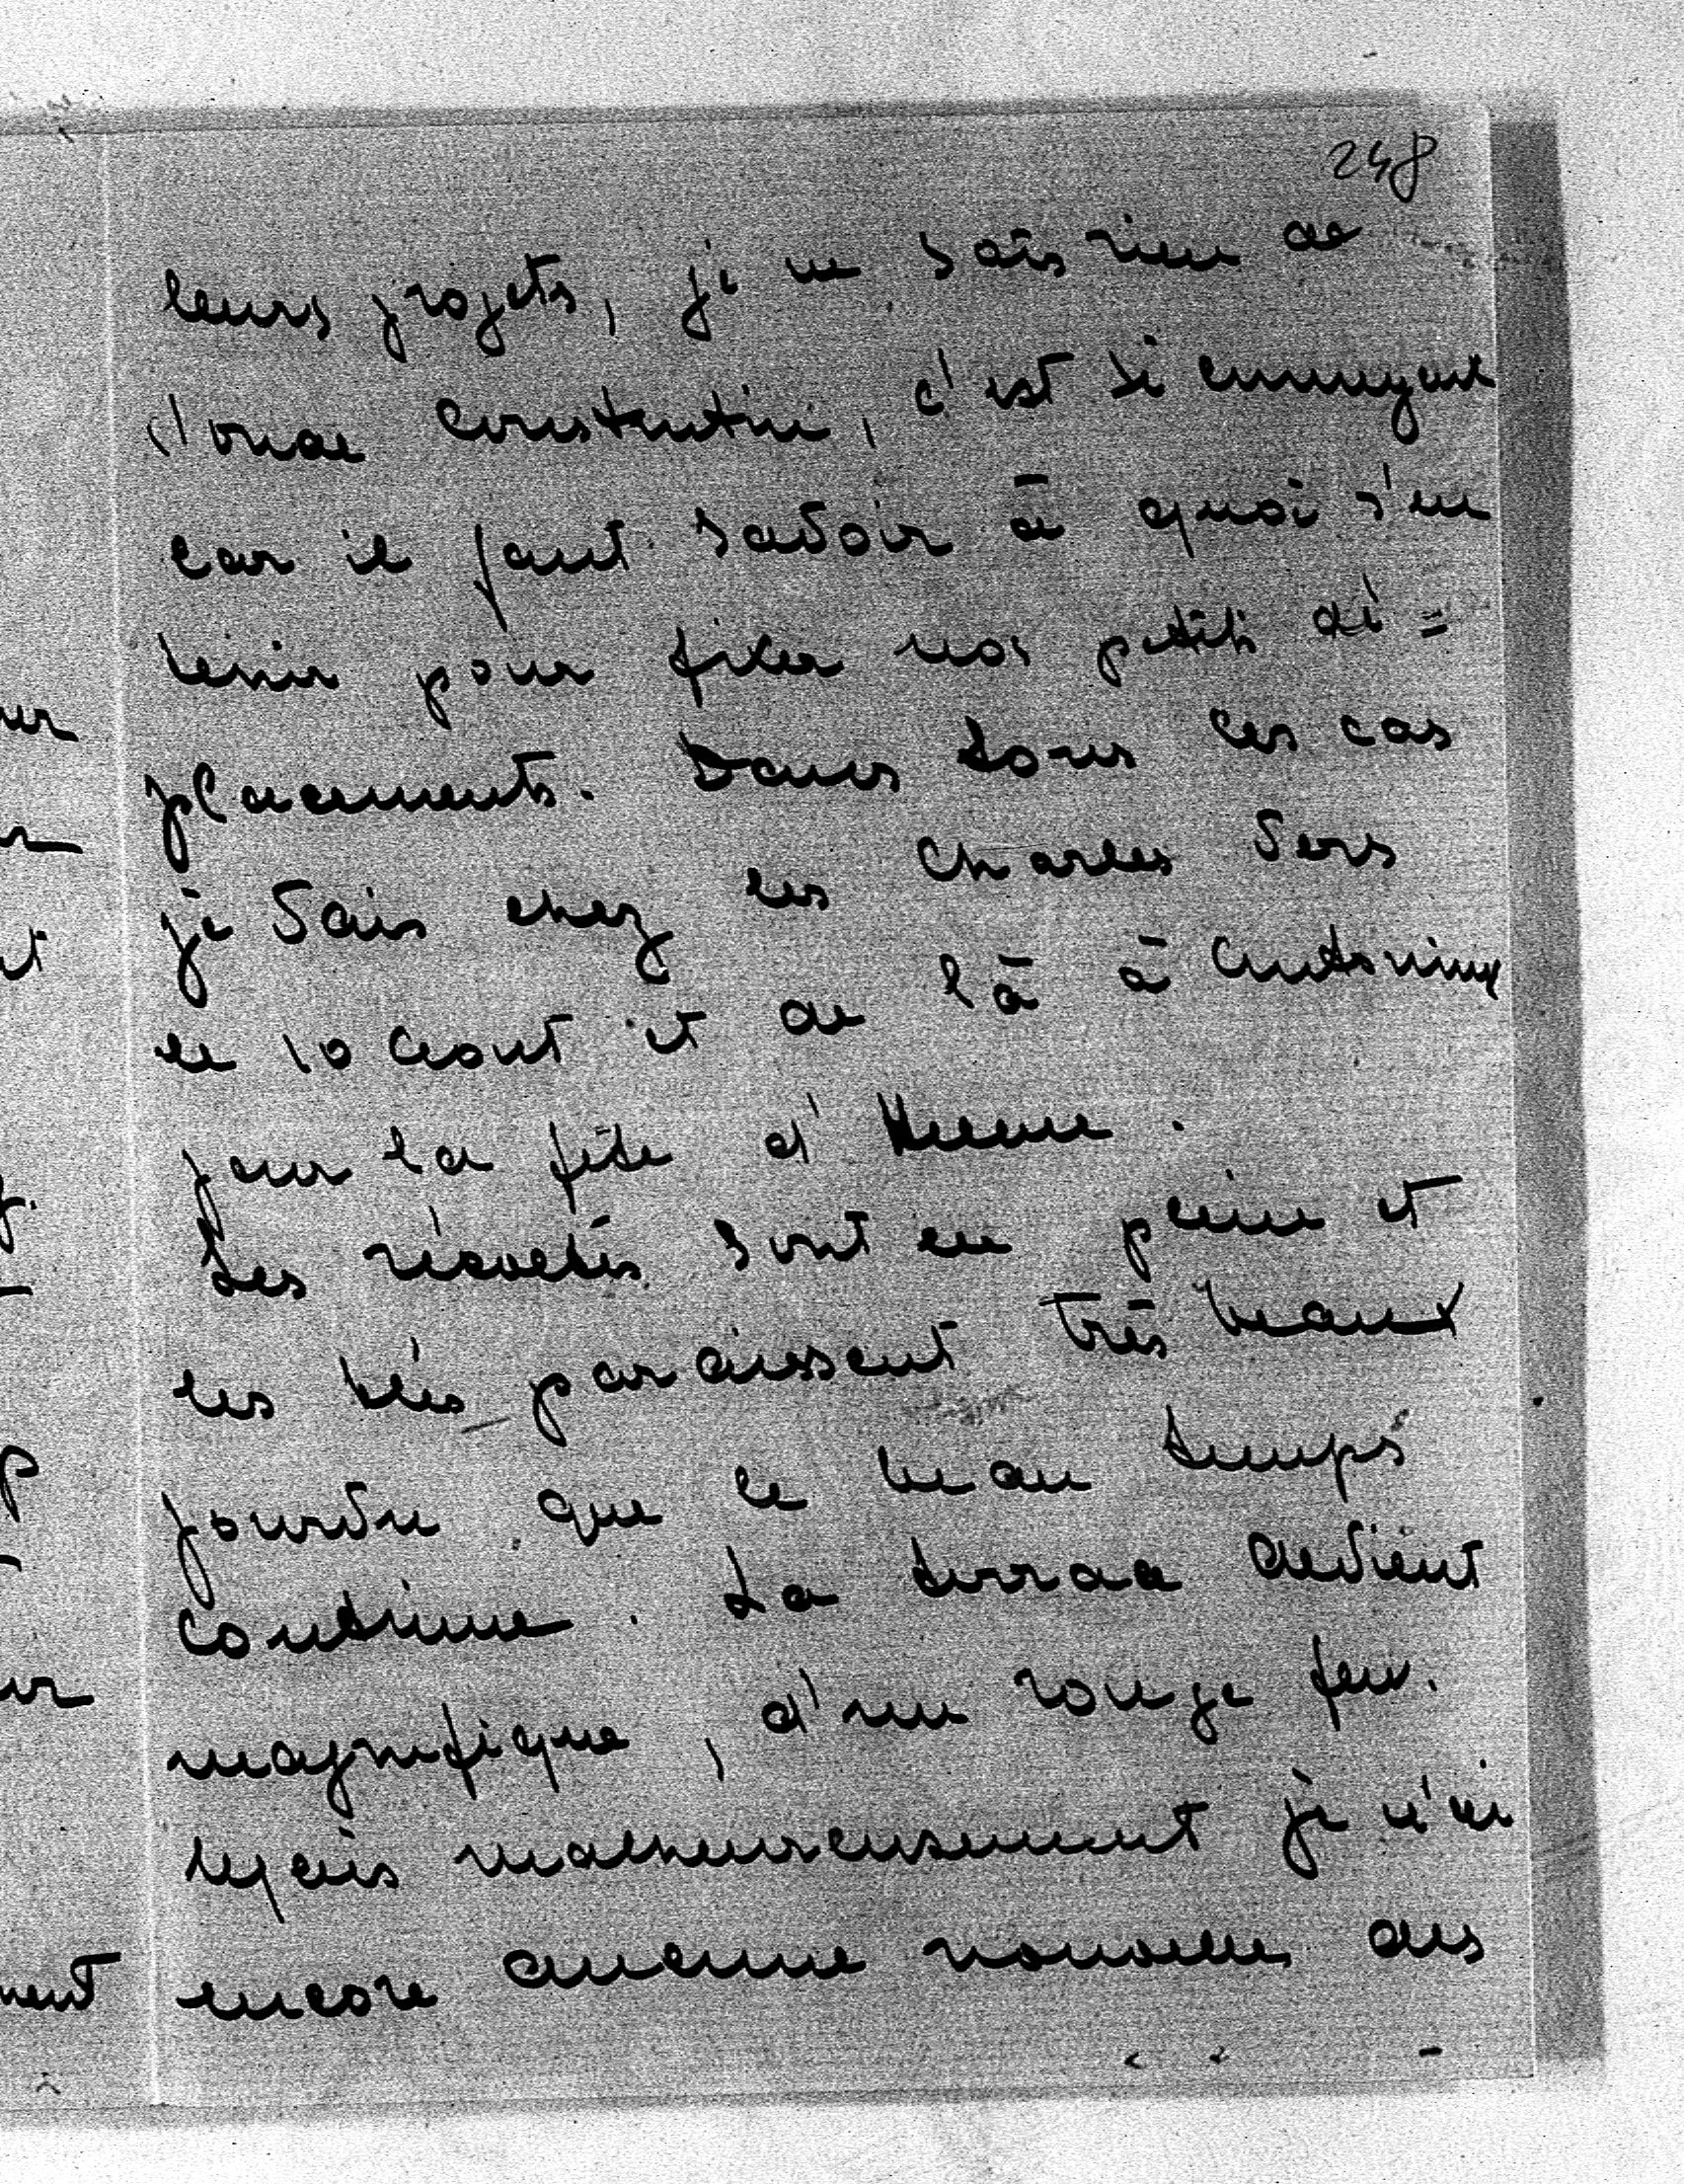 248
leurs projets, je ne sais rien de
l'oncle Constantin, c'est si ennuyant
car il faut savoir à quoi s'en
tenir pour fixer nos petits dé=
placements. Dans tous les cas
je vais chez les Charles vers
le 10 Août et de là à Antonine
pour la fête d'Hélène.
Les récoltes sont en plein et
les blés paraissent très beaux
pourvu que le beau temps
continue. La terrasse devient
magnifique, d'un rouge feu.
Mais malheureusement je n'ai
encore aucune nouvelle des
ur
ment